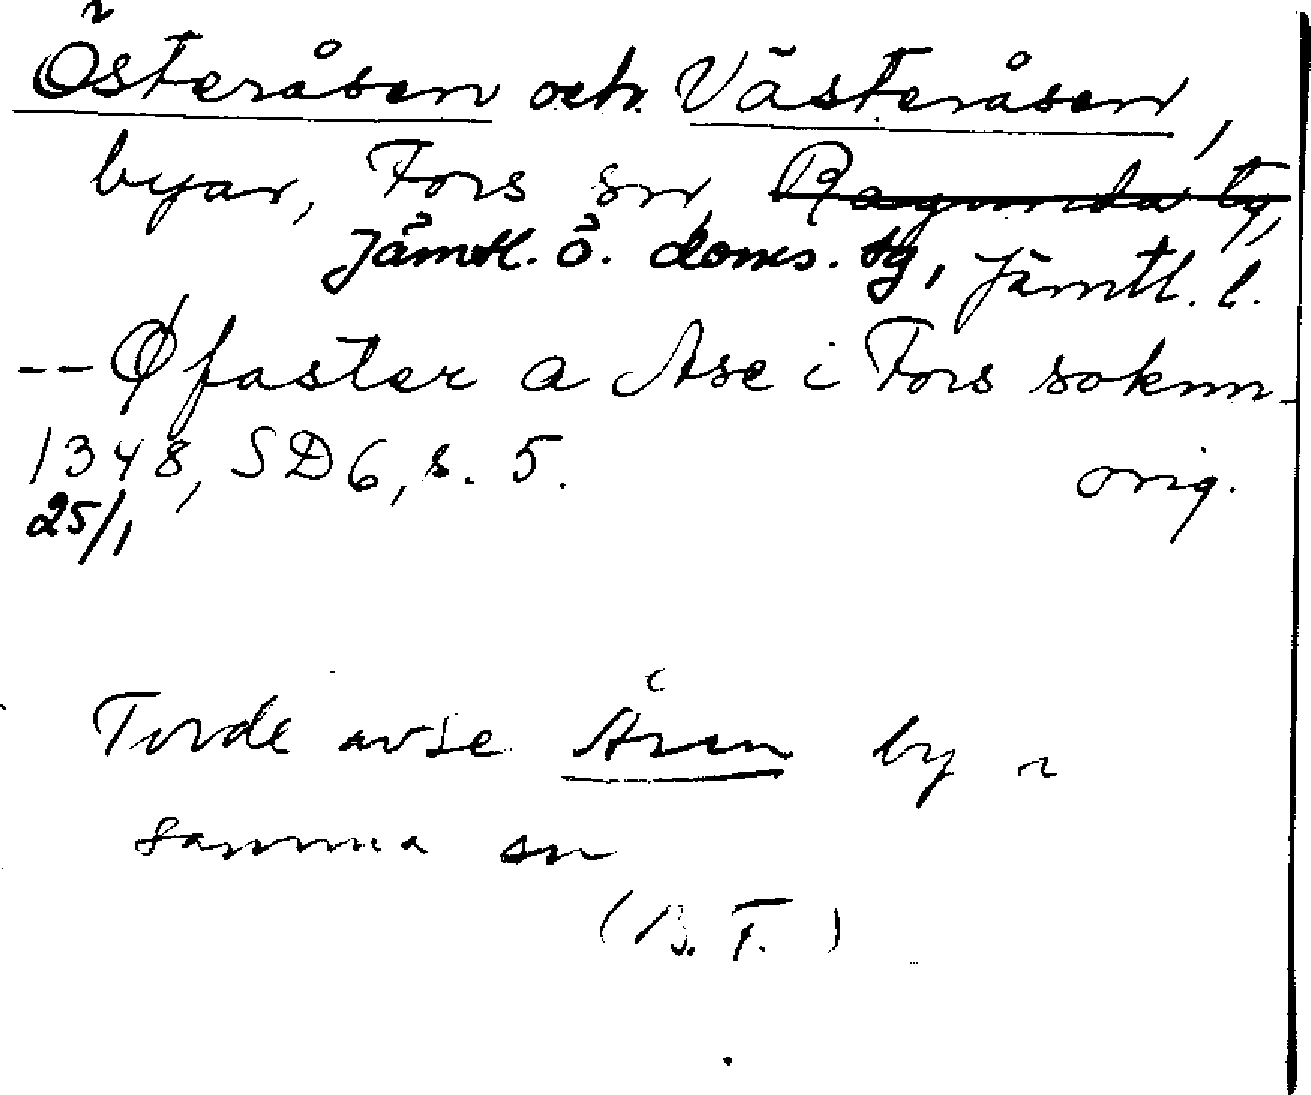 Österåsen och Västeråsen,
byar, Fors sn, Ragunda tg,
Jämtl. ö. doms. tg, Jämtl. l.
-- Øfaster a Ase i Fors soknn -
1348, SD6, s. 5. orig.
25/1
Torde avse Åsen by i
samma sn
(B. F.)